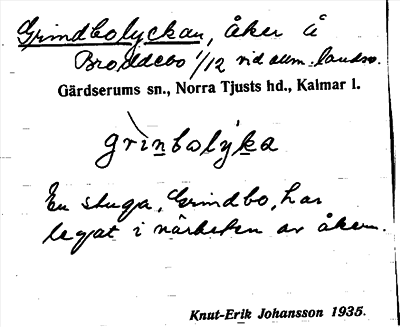 Grindbolyckan, åker å
Broddebo 1/12 vid allm. landsv.
Gärdserums sn., Norra Tjusts hd., Kalmar l.
grìnbolýka
En stuga, Grindbo, har
legat i närheten av åkern.
Knut-Erik Johansson 1935.